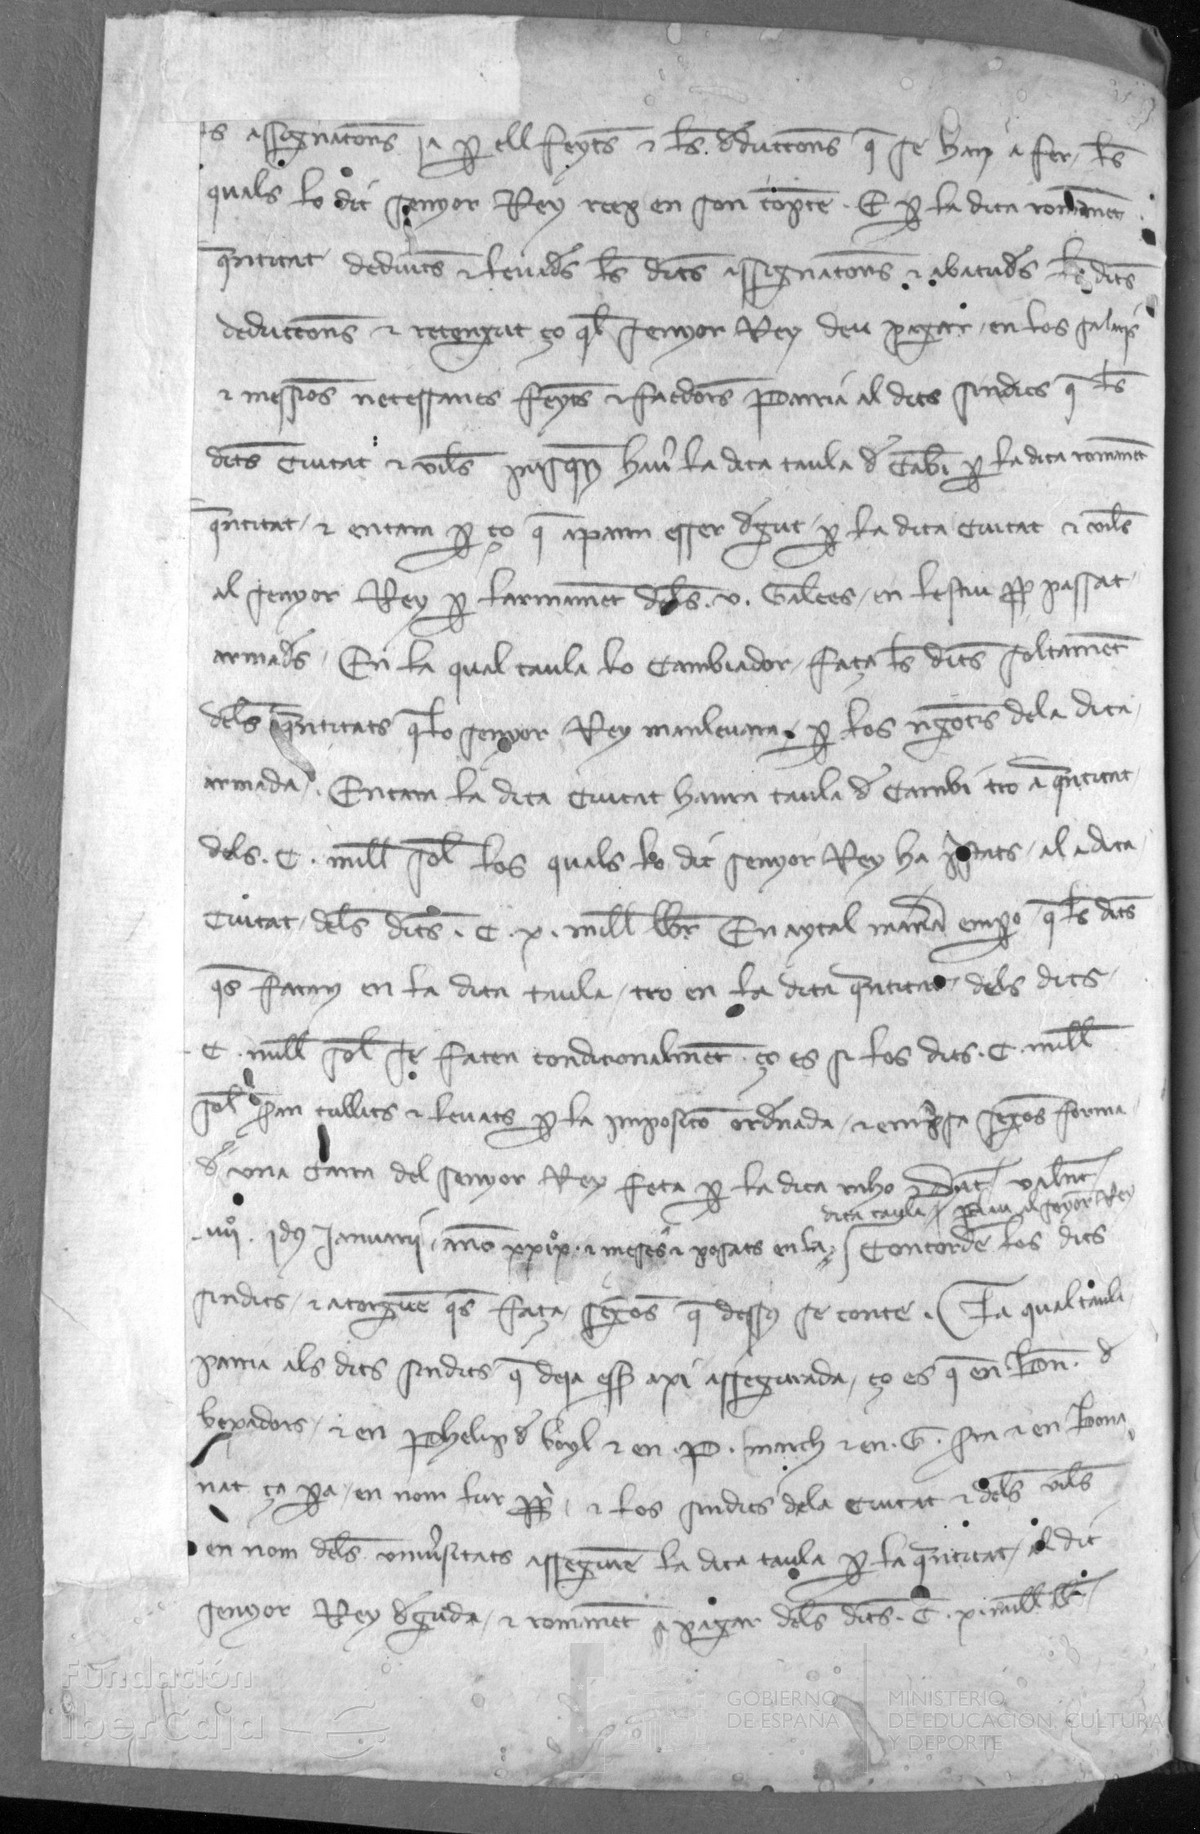 ts assignacons ja p ell feyts ⁊ les deduccons q se han a fer, les
quals lo dit senyor Rey reep en son compte. E p la dita romanent
quantitat deduits ⁊ levades les dites assignacons ⁊ abatudes les dites
deduccons ⁊ retengut ço ql senyor Rey deu pagar, en los salaris
⁊ messions necessaries feytes ⁊ faedores Parria al dits sindics q les
dites Ciutat ⁊ viles la dita taula de Cabi p la dita romanent
quantitat, ⁊ encara p ço q apara esser degut, p la dita Ciutat ⁊ viles
al senyor Rey p larmament deles .v. Galees, en lestiu pp passat
armades. En la qual taula lo Cambiador, faça les dites soltament
deles quantitats qlo senyor Rey manlevara p los negocis dela dita
armada. Encara la dita Ciutat haura taula de Cambi tro a quantitat
dels .C. mill sol los quals lo dit senyor Rey ha prestats, al adita
Ciutat, deles dites .C.x. mill llbr En aytal manera empo q les dites
qs facan en la dita taula, tro en la dita quantitat dels dits
C. mill sol se facen condicionalment ço es si los dits .C. mill
sol seran cullits ⁊ levats p la imposicio ordenada, ⁊ empresa segons forma
de una Carta del senyor Rey feta p la dita raho Dat valent
dita taula, al senyor Rey
.iiii. idus Januarii, anno xxix. ⁊ meses ⁊ posats en la Concorden los dits
sindics, ⁊ atorguen qs faça, segons q dessus se conte. La qual taula
parria als dits sindics q deja esser axi assegurada, ço es q en Bn. de
bexadors, ⁊ en Phelip de boyl ⁊ en .P. march ⁊ en .G. ⁊ en Bona
nat ça pa, en nom lur pp, ⁊ los sindics dela Ciutat ⁊ deles viles
en nom deles universitats asseguren la dita taula p la quantitat, al dit
senyor Rey deguda, ⁊ romanent a pagar deles dites .C.x. mill llbr
Fundación
iberCaja
GOBIERNO
DE ESPAÑA
MINISTERIO
DE EDUCACIÓN, CULTURA
Y DEPORTE